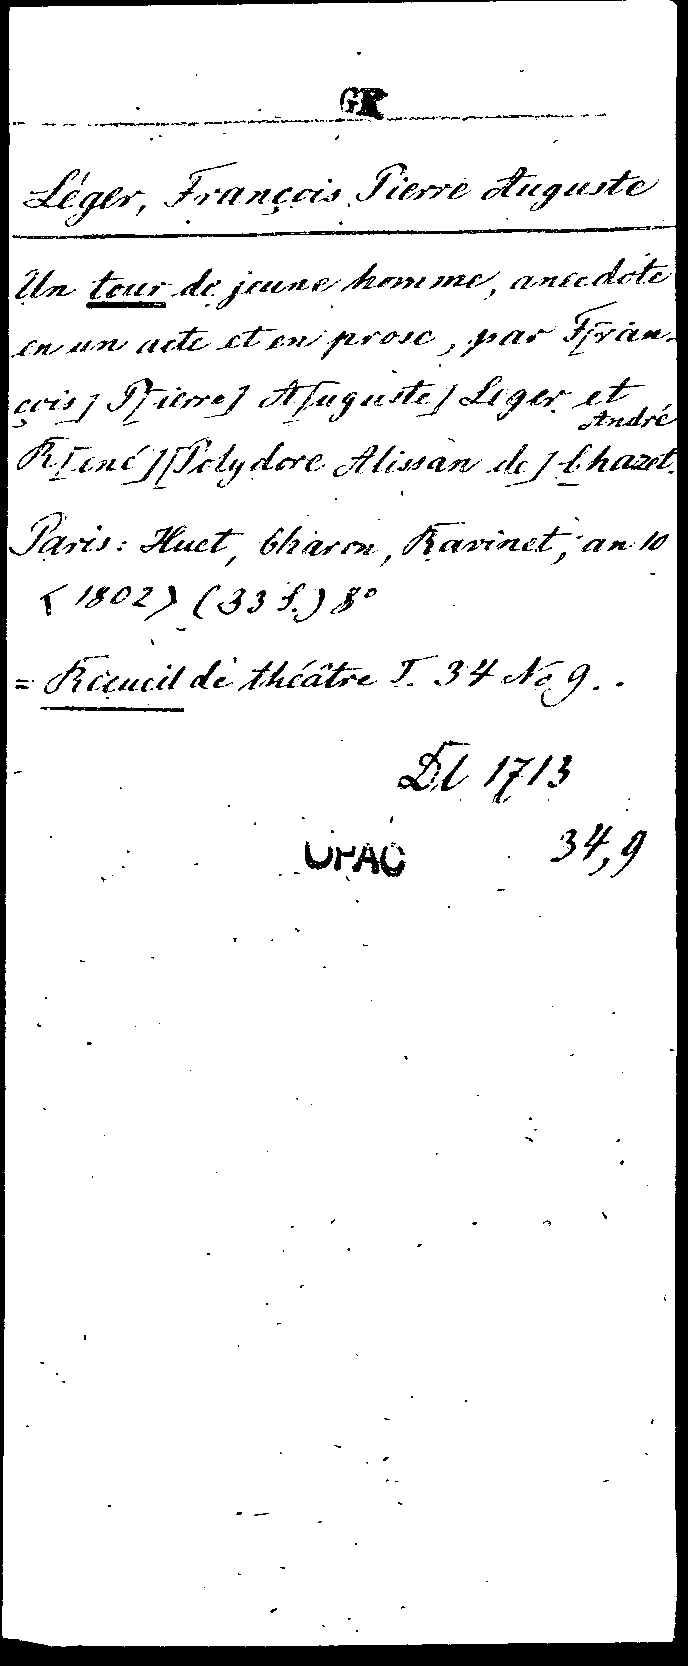 GK
Léger, François Pierre Auguste
Un tour de jeune homme, anecdote
en un acte et en prose, par F[ran-
çois] P[ierre] A[uguste] Leger et
André
R[ené] [Polydore Alissan de] Chazet.
Paris: Huet, Charon, Ravinet, an 10
<1802> (33 S.) 8°
= Recueil de théâtre T. 34 No 9.
Dl 1713
34,9
OPAC